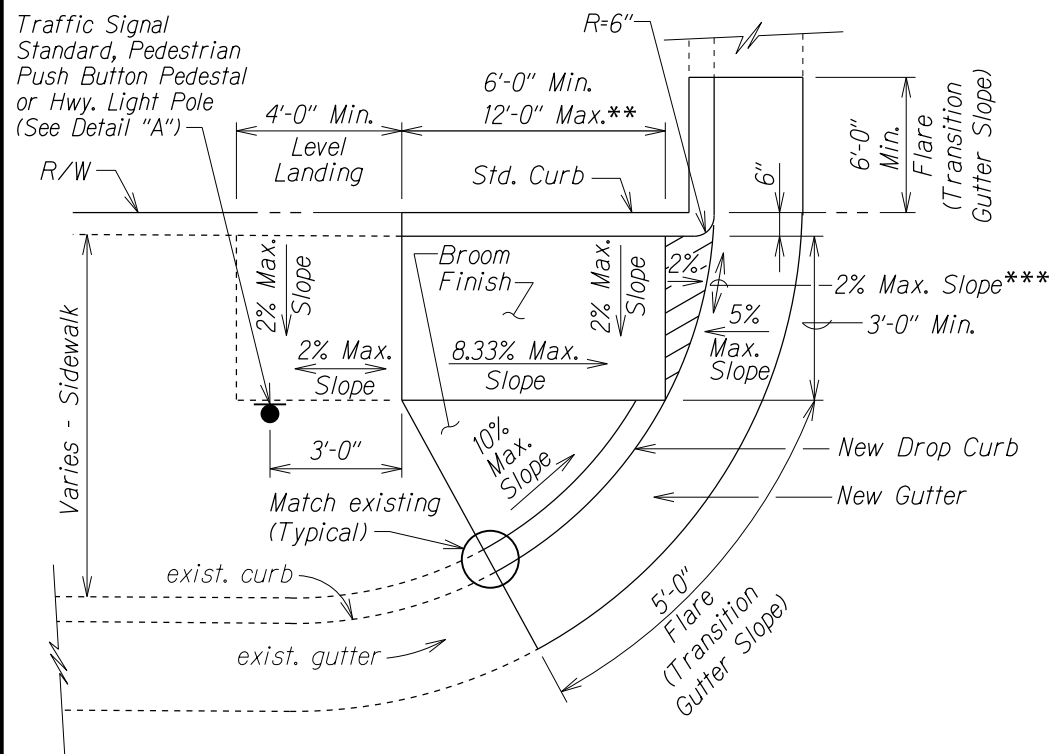 Traffic Signal
Standard, Pedestrian
Push Button Pedestal
or Hwy. Light Pole
(See Detail "A")
R/W
4'-0" Min.
Level
Landing
6'-0" Min.
12'-0" Max.**
Std. Curb
R=6"
6"
6'-0"
Min.
Flare
(Transition
Gutter Slope)
2% Max.
Slope
2% Max.
Slope
Broom
Finish
2% Max.
Slope
8.33% Max.
Slope
2%
5%
Max.
Slope
2% Max. Slope***
3'-0" Min.
Varies - Sidewalk
3'-0"
10%
Max.
Slope
New Drop Curb
New Gutter
Match existing
(Typical)
exist. curb
exist. gutter
5'-0"
Flare
(Transition
Gutter Slope)